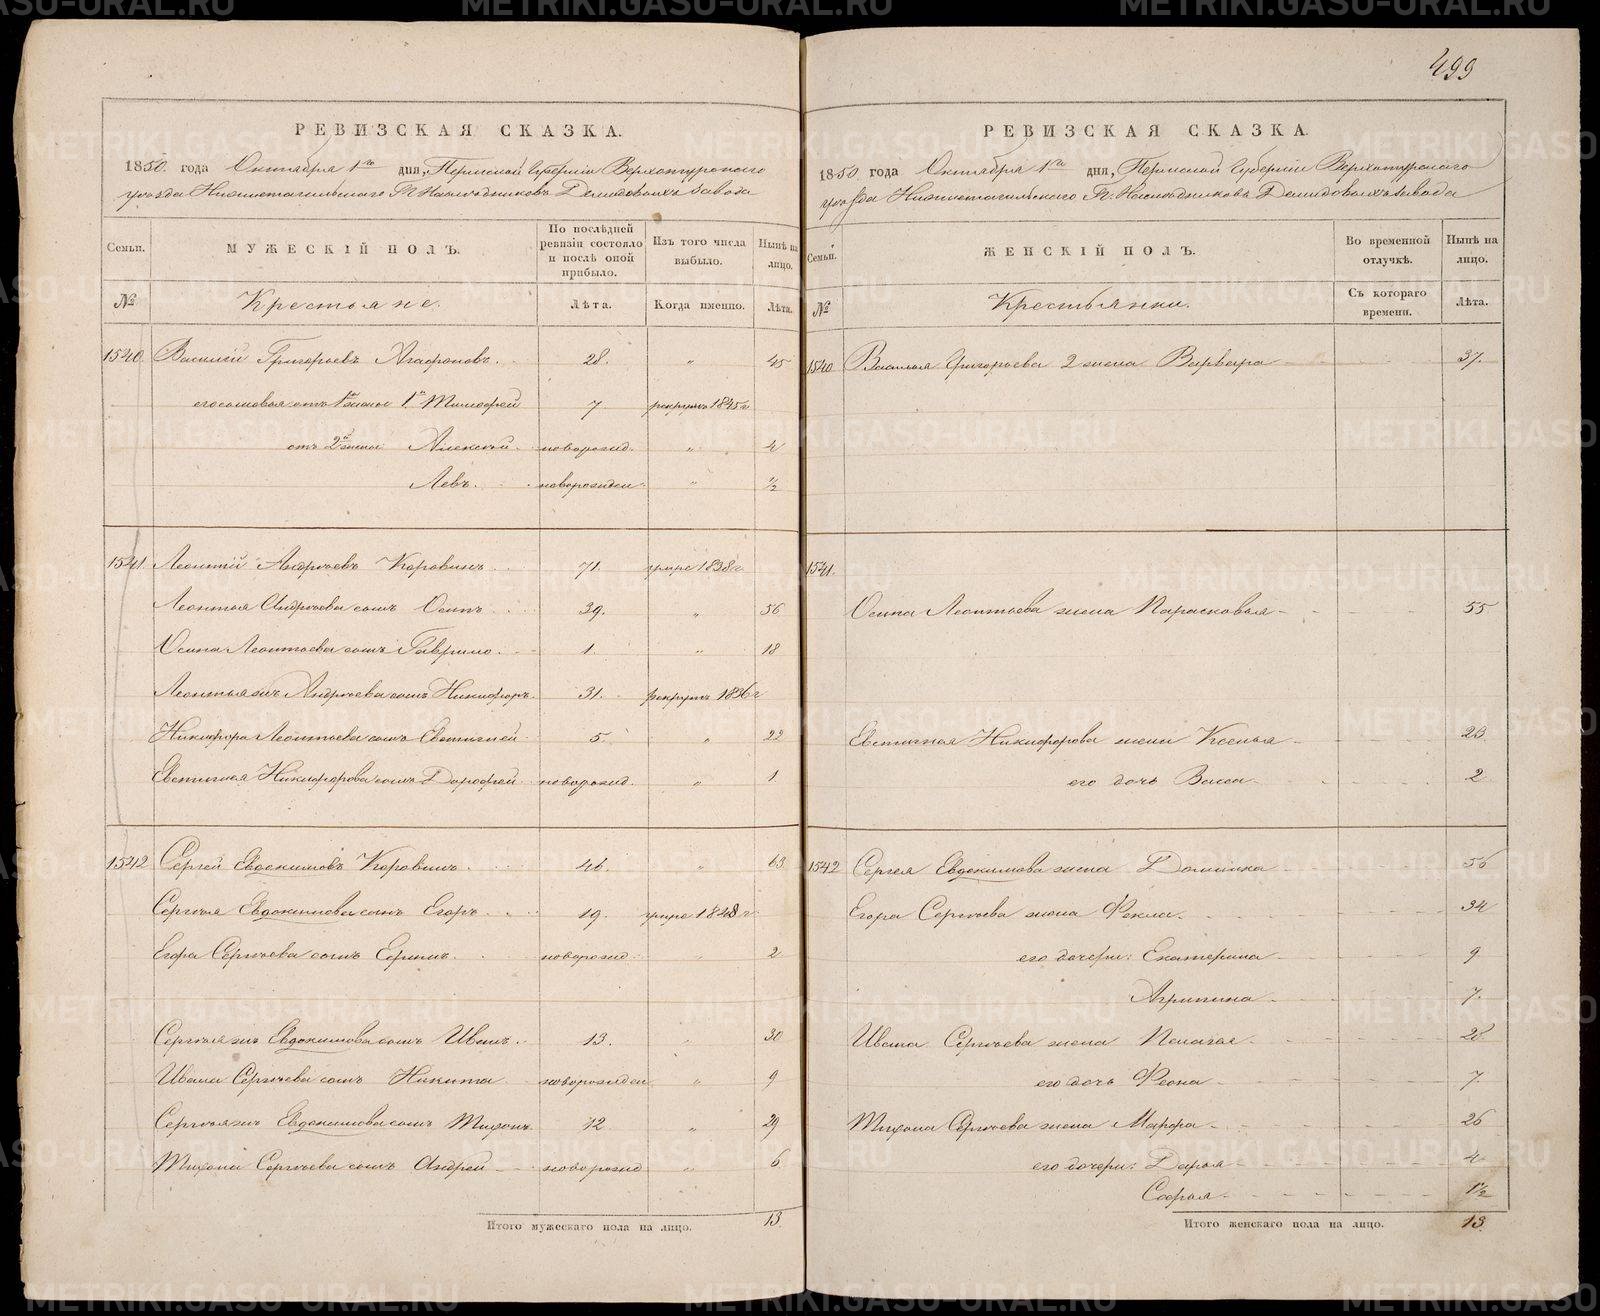 499
РЕВИЗСКАЯ СКАЗКА.
1850. года Октября 1го дня, Пермской Губернiи Верхотурскаго
уѣзда Нижнетагильскаго Г. Наслѣдниковъ Демидовыхъ завода
Семьи.
МУЖЕСКІЙ ПОЛЪ.
По послѣдней ревизіи состояло и послѣ оной прибыло.
Изъ того числа выбыло.
Нынѣ на лицо.
№
Крестьяне.
Лѣта.
Когда именно.
Лѣта.
1540. Василiй Григорьевъ Агафоновъ. 28. " 45
его сыновья отъ 1й жены 1й Тимофей 7 рекрутъ 1845 г
отъ 2й жены Алексѣй новорожд. " 4
Левъ. новорожден. " 1/2
1541. Леонтiй Андрѣевъ Коровинъ 71. умре 1838 г.
Леонтья Андрѣева сынъ Осипъ 39. " 56
Осипа Леонтьева сынъ Гаврило. 1. " 18
Леонтья жъ Андрѣева сынъ Никифоръ. 31. рекрутъ 1836 г
Никифора Леонтьева сынъ Евстигней 5. " 22
Евстигнея Никифорова сынъ Дорофей новорожд. " 1
1542 Сергей Евдокимовъ Коровинъ. 46. " 63
Сергѣя Евдокимова сынъ Егоръ. 19. умре 1848 г
Егора Сергѣева сынъ новорожд " 2
Сергѣя жъ Евдокимова сынъ Иванъ. 13. " 30
Ивана Сергѣева сынъ Никита новорожден " 9
Сергѣя жъ Евдокимова сынъ Тихонъ. 12 " 29
Тихона Сергѣева сынъ Андрей новорожд " 6
Итого мужескаго пола на лицо. 13.
РЕВИЗСКАЯ СКАЗКА.
1850 года Октября 1го дня, Пермской Губернiи Верхотурскаго
уѣзда Нижнетагильскаго Г. Наслѣдниковъ Демидовыхъ завода
Семьи.
ЖЕНСКІЙ ПОЛЪ.
Во временной отлучкѣ.
Нынѣ на лицо.
№
Крестьянки.
Съ котораго времени.
Лѣта.
1540 Василья Григорьева 2 жена Варвара 37.
1541.
Осипа Леонтьева жена Парасковья 55
Евстигнея Никифорова жена Ксенья 23.
его дочь Васса 2
1542 Сергея Евдокимова жена Домника 56
Егора Сергѣева жена Фекла. 34
его дочери: Екатерина 9
Агрипина 7.
Ивана Сергѣева жена Пелагея. 28
его дочь Феона 7.
Тихона Сергѣева жена Марфа. 26
его дочери: Дарья 4
Софья. 1 1/2
Итого женскаго пола на лицо. 13.
METRIKI.GASO-URAL.RU